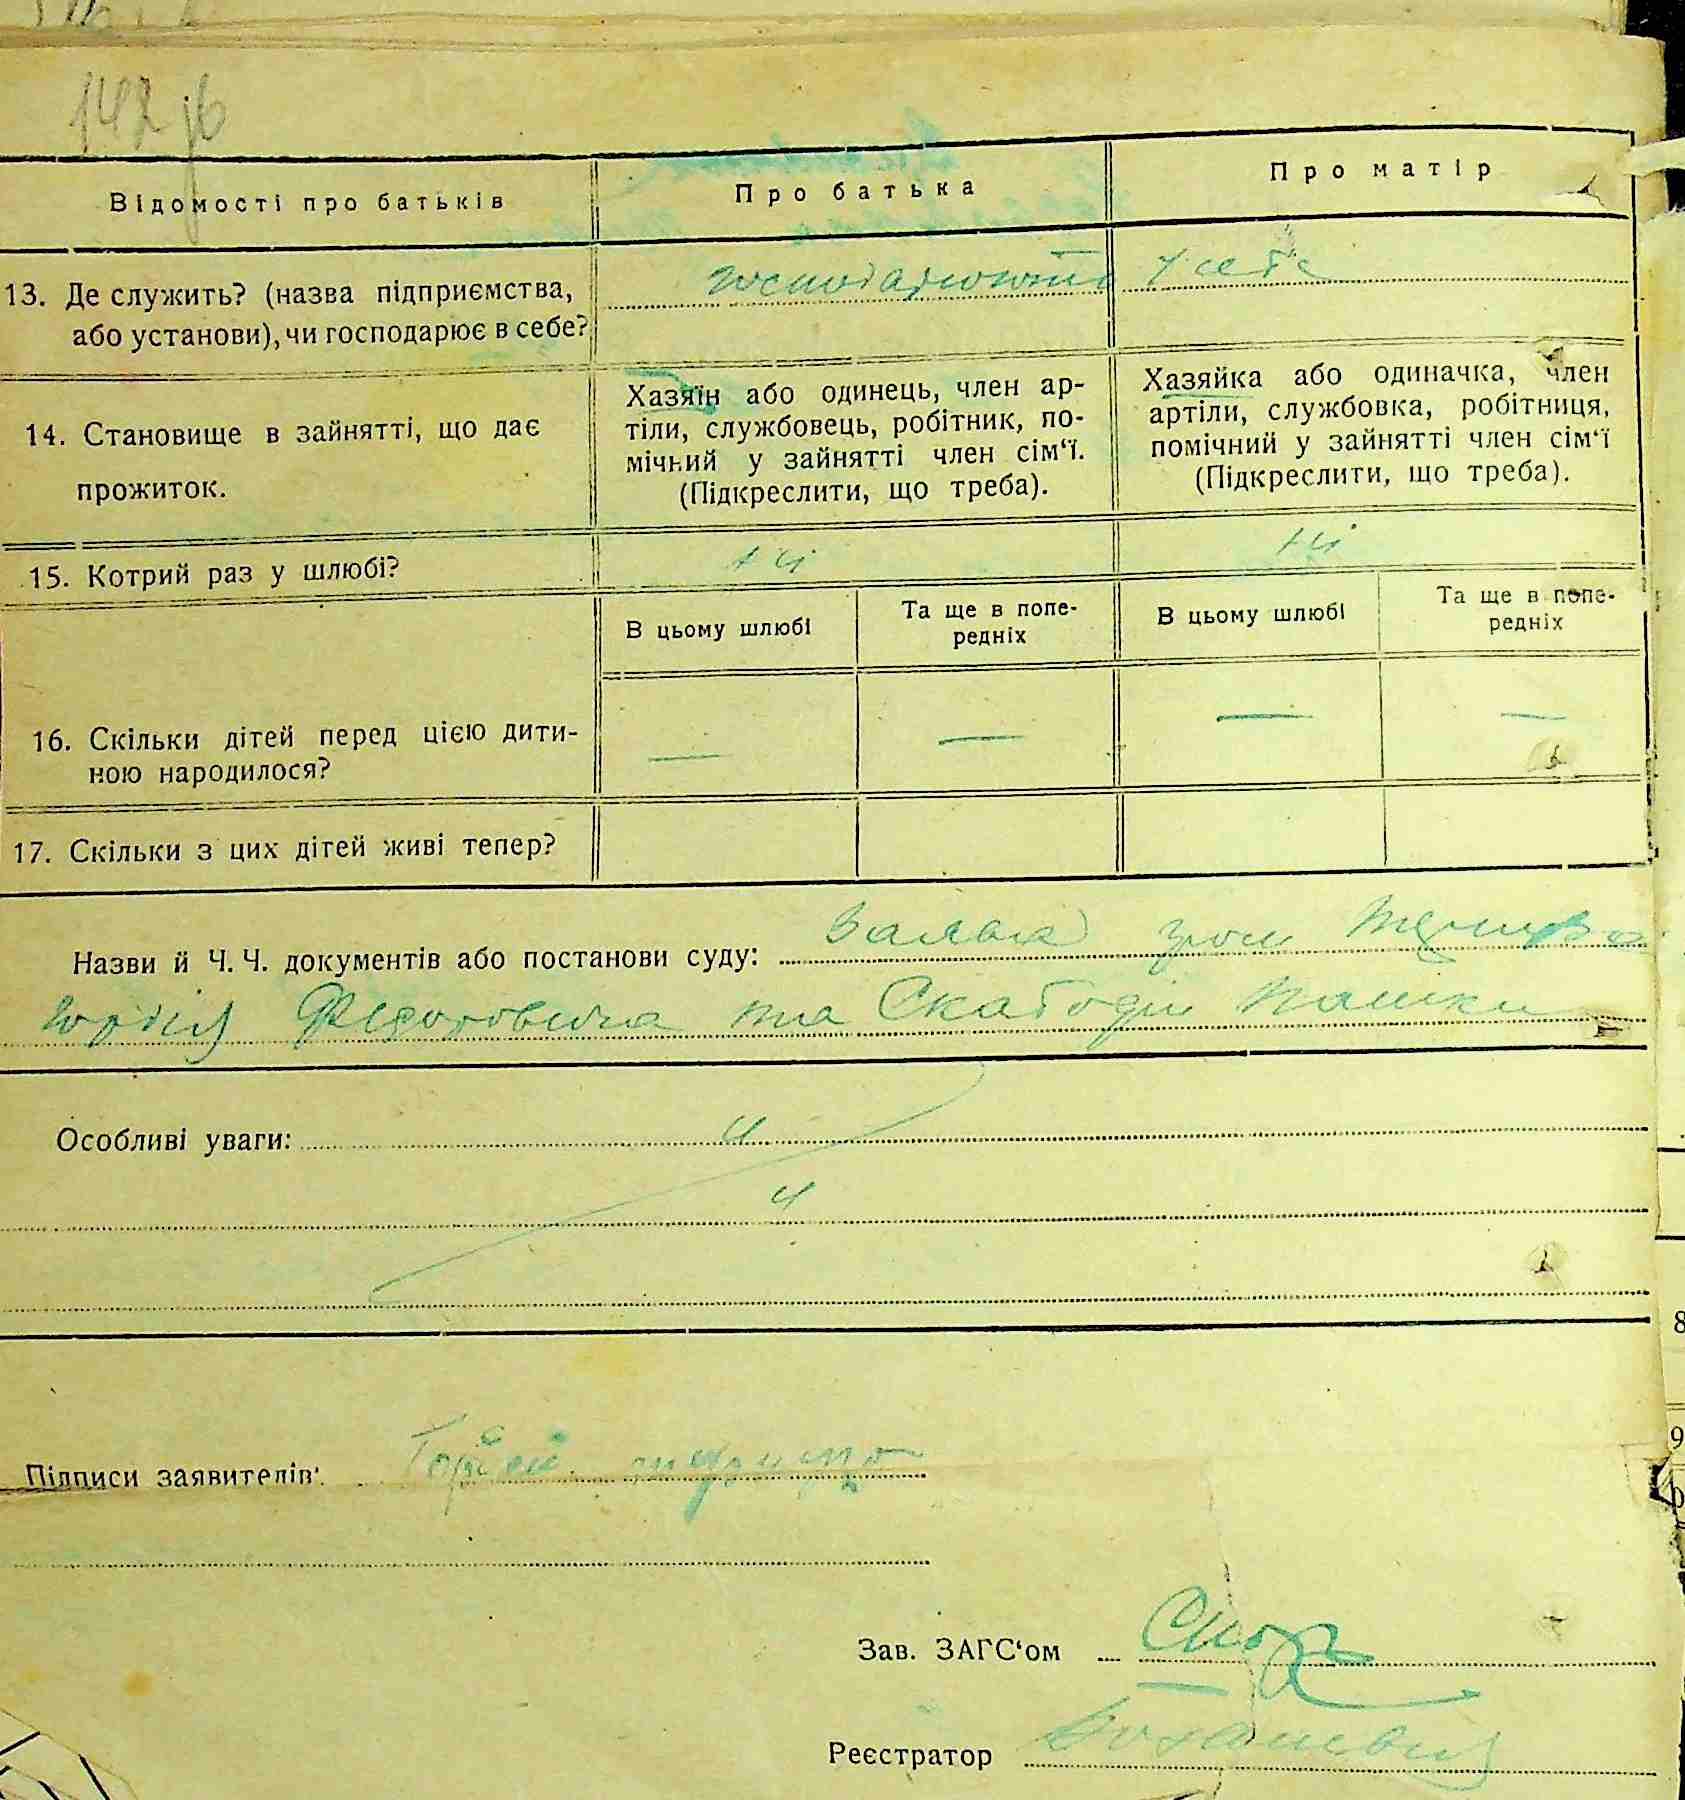 142 зв
Відомості про батьків
Про батька
Про матір
13. Де служить? (назва підприємства,
або установи), чи господарює в себе?
господарюють у себе
14. Становище в зайнятті, що дає
прожиток.
Хазяїн або одинець, член ар-
тіли, службовець, робітник, по-
мічний у зайнятті член сім‘ї.
(Підкреслити, що треба).
Хазяйка або одиначка, член
артіли, службовка, робітниця,
помічний у зайнятті член сім‘ї
(Підкреслити, що треба).
15. Котрий раз у шлюбі?
В цьому шлюбі
Та ще в попе-
редніх
В цьому шлюбі
Та ще в попе-
редніх
16. Скільки дітей перед цією дити-
ною народилося?
— — — —
17. Скільки з цих дітей живі тепер?
Назви й Ч. Ч. документів або постанови суду: Заява гром
Федоровича та
Особливі уваги:
Підписи заявителів:
Зав. ЗАГС‘ом
Реєстратор
8
9